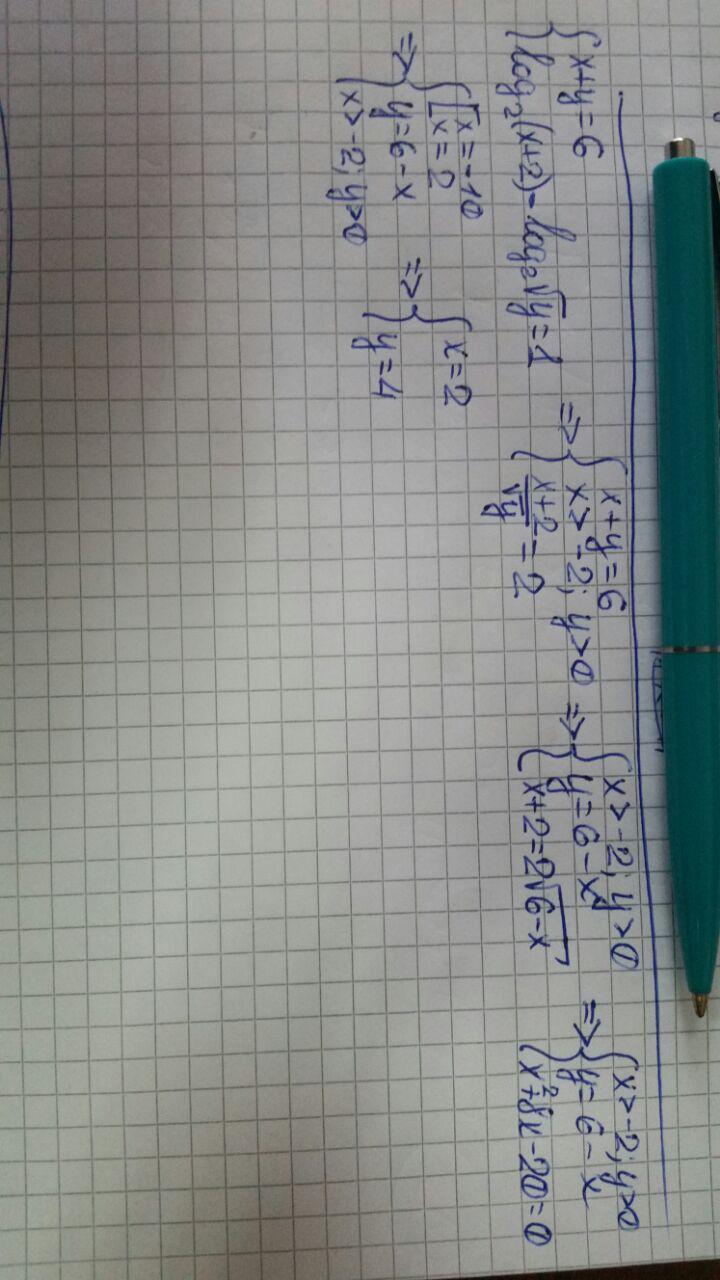 { x+y=6
{ log₂(x+2)-log₂√y=1
=> { x+y=6
{ x>-2; y>0
{ (x+2)/√y = 2
=> { x>-2; y>0
{ y=6-x
{ x+2=2√(6-x)
=> { x>-2; y>0
{ y=6-x
{ x²+8x-20=0
=> { [ x=-10
[ x=2
{ y=6-x
{ x>-2; y>0
=> { x=2
{ y=4